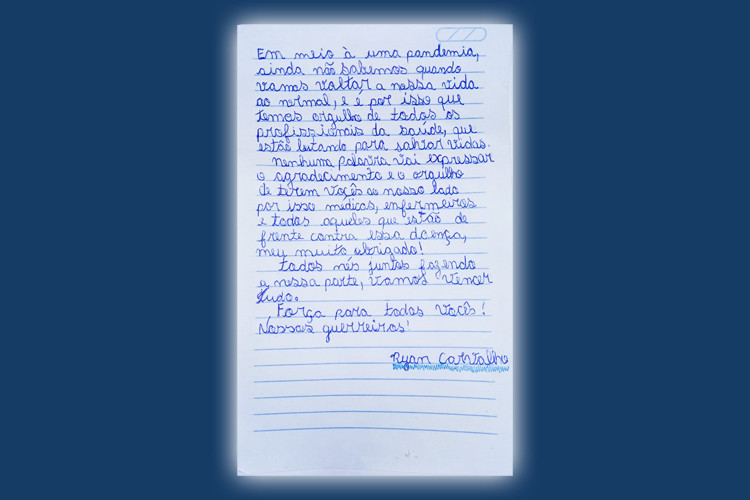 Em meio à uma pandemia,
ainda não sabemos quando
vamos voltar a nossa vida
ao normal, e é por isso que
temos orgulho de todos os
profissionais da saúde, que
estão lutando para salvar vidas.
nenhuma palavra vai expressar
o agradecimento e o orgulho
de terem vocês ao nosso lado
por isso médicos, enfermeiros
e todos aqueles que estão de
frente contra essa doença,
meu muito obrigado!
todos nós juntos fazendo
a nossa parte, vamos vencer
tudo.
Força para todos vocês!
Nossos guerreiros!
Ryan Carvalho